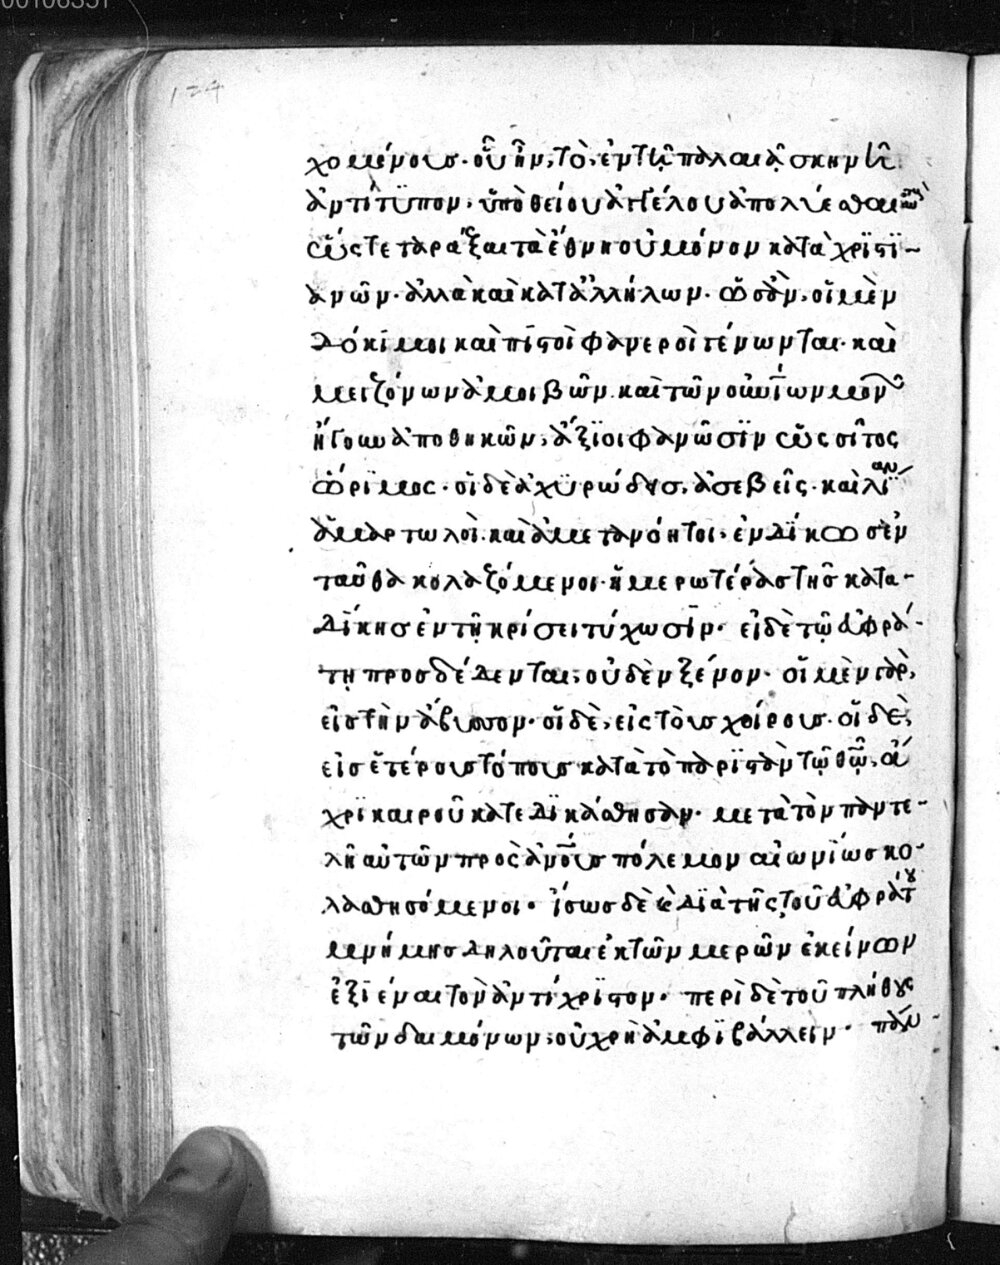 00106351
124
χομένοις· οὗ ἦν, τὸ, ἐν τῇ παλαιᾷ σκηνῇ
ἀντίτυπον, ὑπὸ θείου ἀγγέλου ἀπολύεσθαι
ὥστε ταράξαι τὰ ἔθνη οὐ μόνον κατὰ χριστι-
ανῶν· ἀλλὰ καὶ κατ' ἀλλήλων. ὡς ἂν, οἱ μὲν
δόκιμοι καὶ πιστοὶ φανεροὶ γένωνται· καὶ
μειζόνων ἀμοιβῶν. καὶ τῶν οὐνίων μονῶν
ἤγουν ἀποθηκῶν, ἄξιοι φανῶσιν ὡς σῖτος
ὥριμος· οἱ δὲ ἀχυρώδεις, ἀσεβεῖς· καὶ λίαν
ἁμαρτωλοὶ. καὶ ἀμετανόητοι, ἐνδίκως ἐν
ταῦθα κολαζόμενοι. ἡμερωτέρας τῆς κατα-
δίκης ἐν τῇ κρίσει τύχωσιν· εἰ δὲ τῷ εὐφρά-
τῃ προσδέδενται, οὐδὲν ξένον· οἱ μὲν γὰρ,
εἰς τὴν ἄβυσσον· οἱ δὲ, εἰς τοὺς χοίρους· οἱ δὲ,
εἰς ἑτέρους τόπους κατὰ τὸ παριστὰν τῷ θῷ, ἄ
χρι καιροῦ κατεδικάσθησαν· μετὰ τὸν παντε-
λῆ αὐτῶν πρὸς ἀνους πόλεμον αἰωνίως κο-
λασθησόμενοι· ἴσως δὲ καὶ διὰ τῆς τοῦ εὐφράτου
μνήμης δηλοῦται ἐκ τῶν μερῶν ἐκείνων
ἐξιέναι τὸν ἀντίχριστον· περὶ δὲ τοῦ πλήθους
τῶν δαιμόνων, οὐ χρὴ ἀμφιβάλλειν·